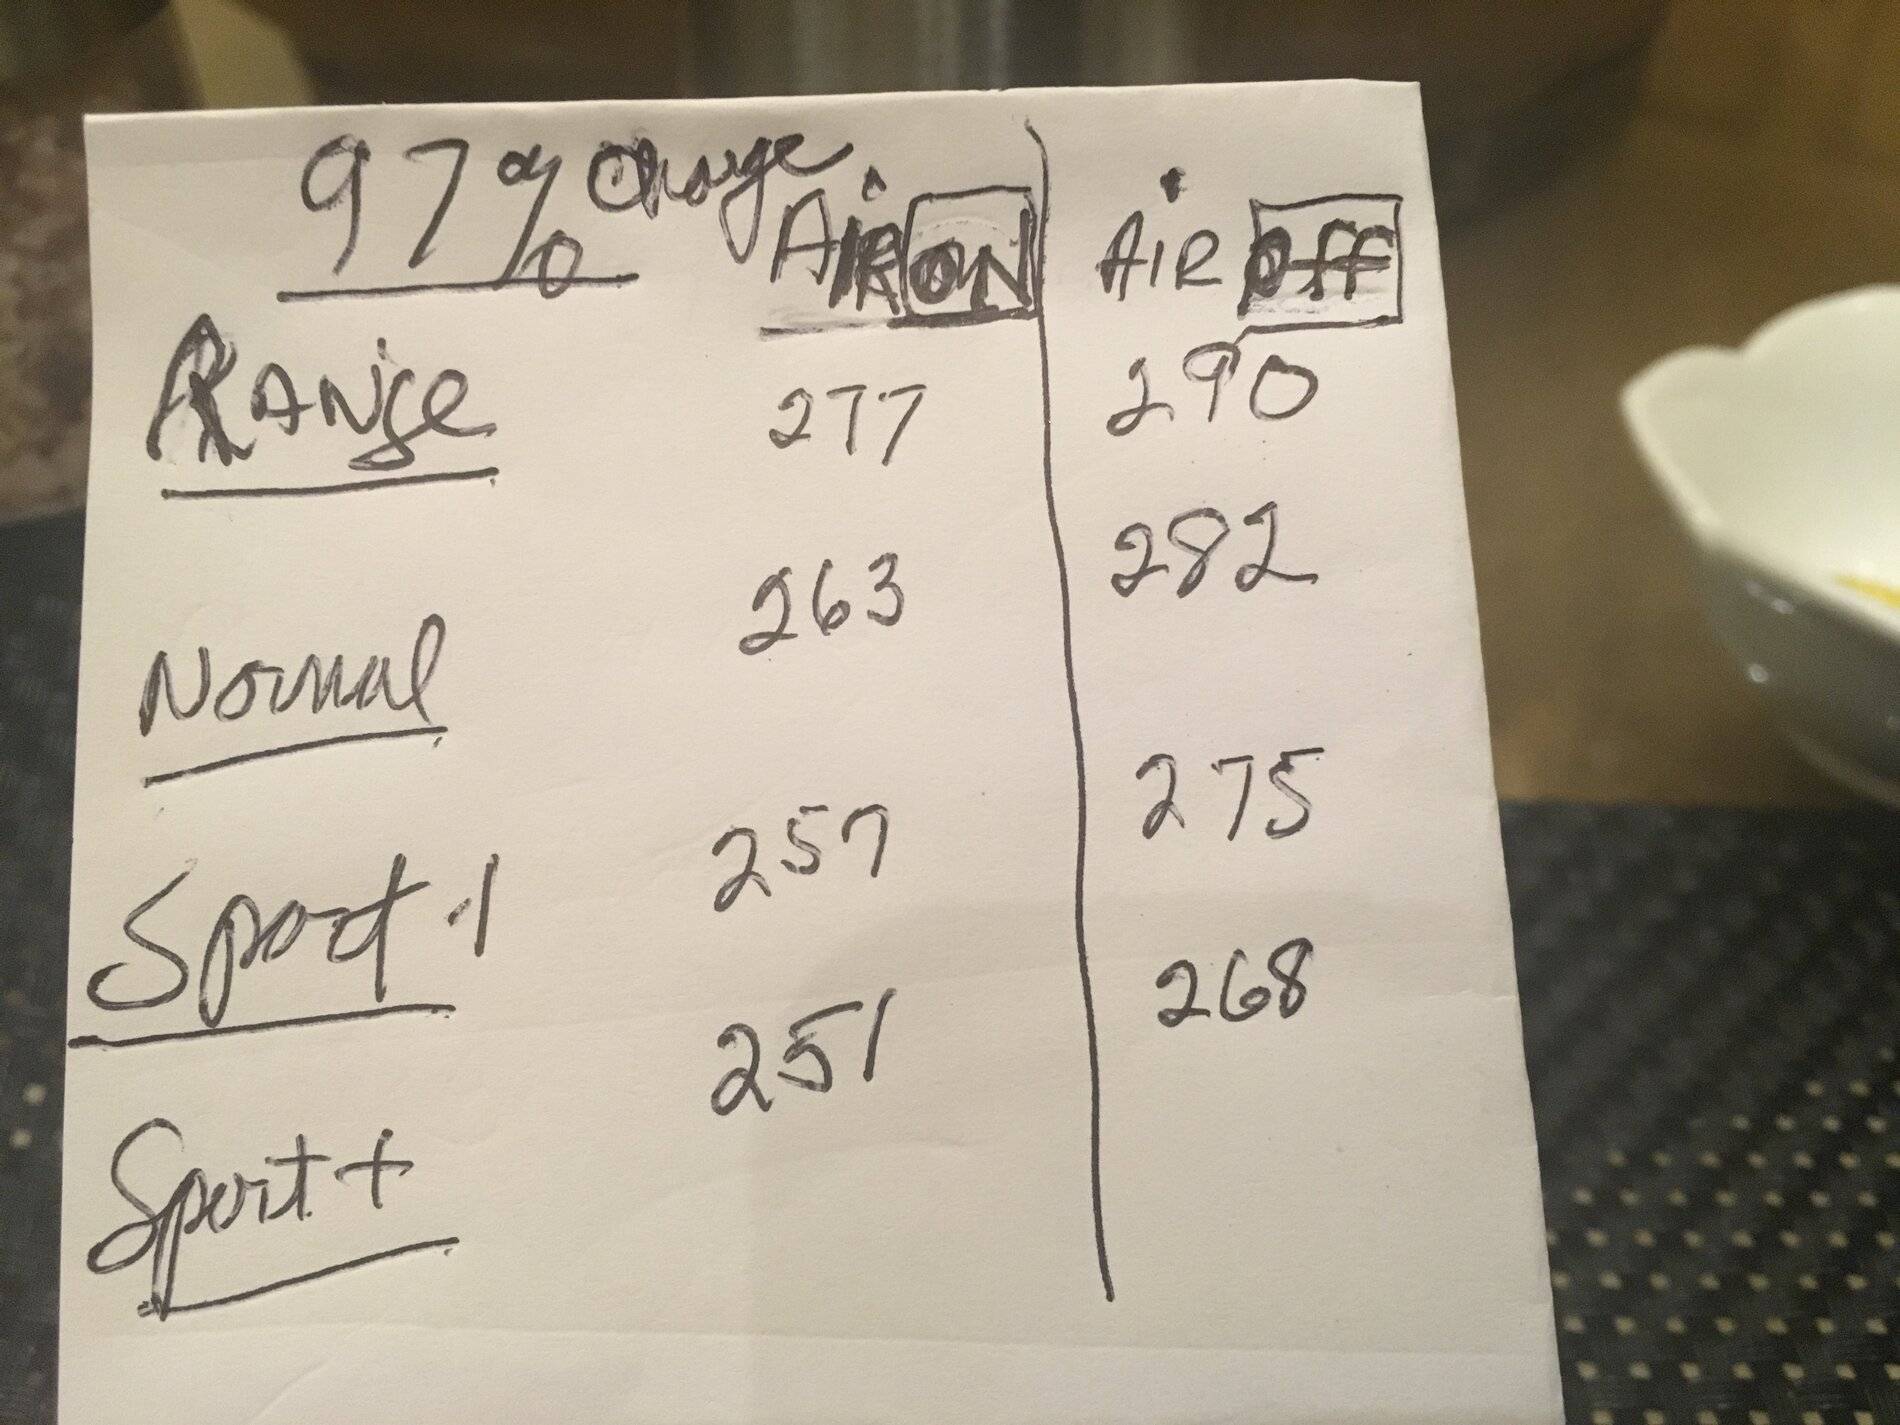 97% Charge AiR ON AiR Off
RANge 277 290
Normal 263 282
Sport 257 275
Sport+ 251 268